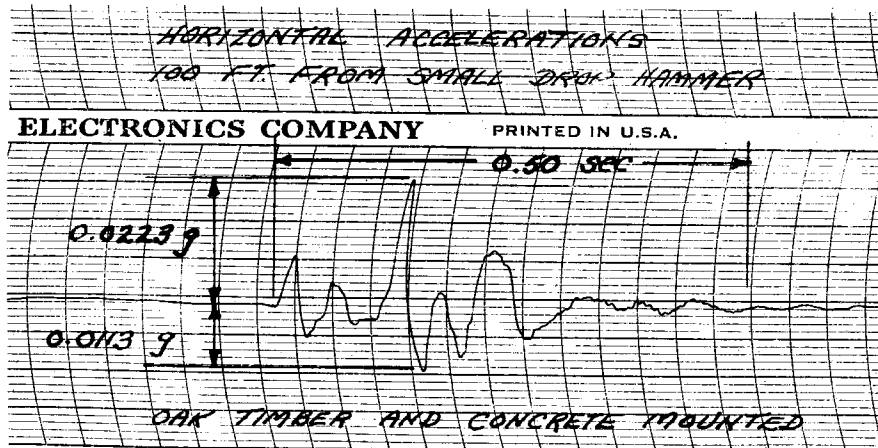 HORIZONTAL ACCELERATIONS
100 FT. FROM SMALL DROP HAMMER
ELECTRONICS COMPANY PRINTED IN U.S.A.
0.50 SEC
0.0223 g
0.0113 g
OAK TIMBER AND CONCRETE MOUNTED